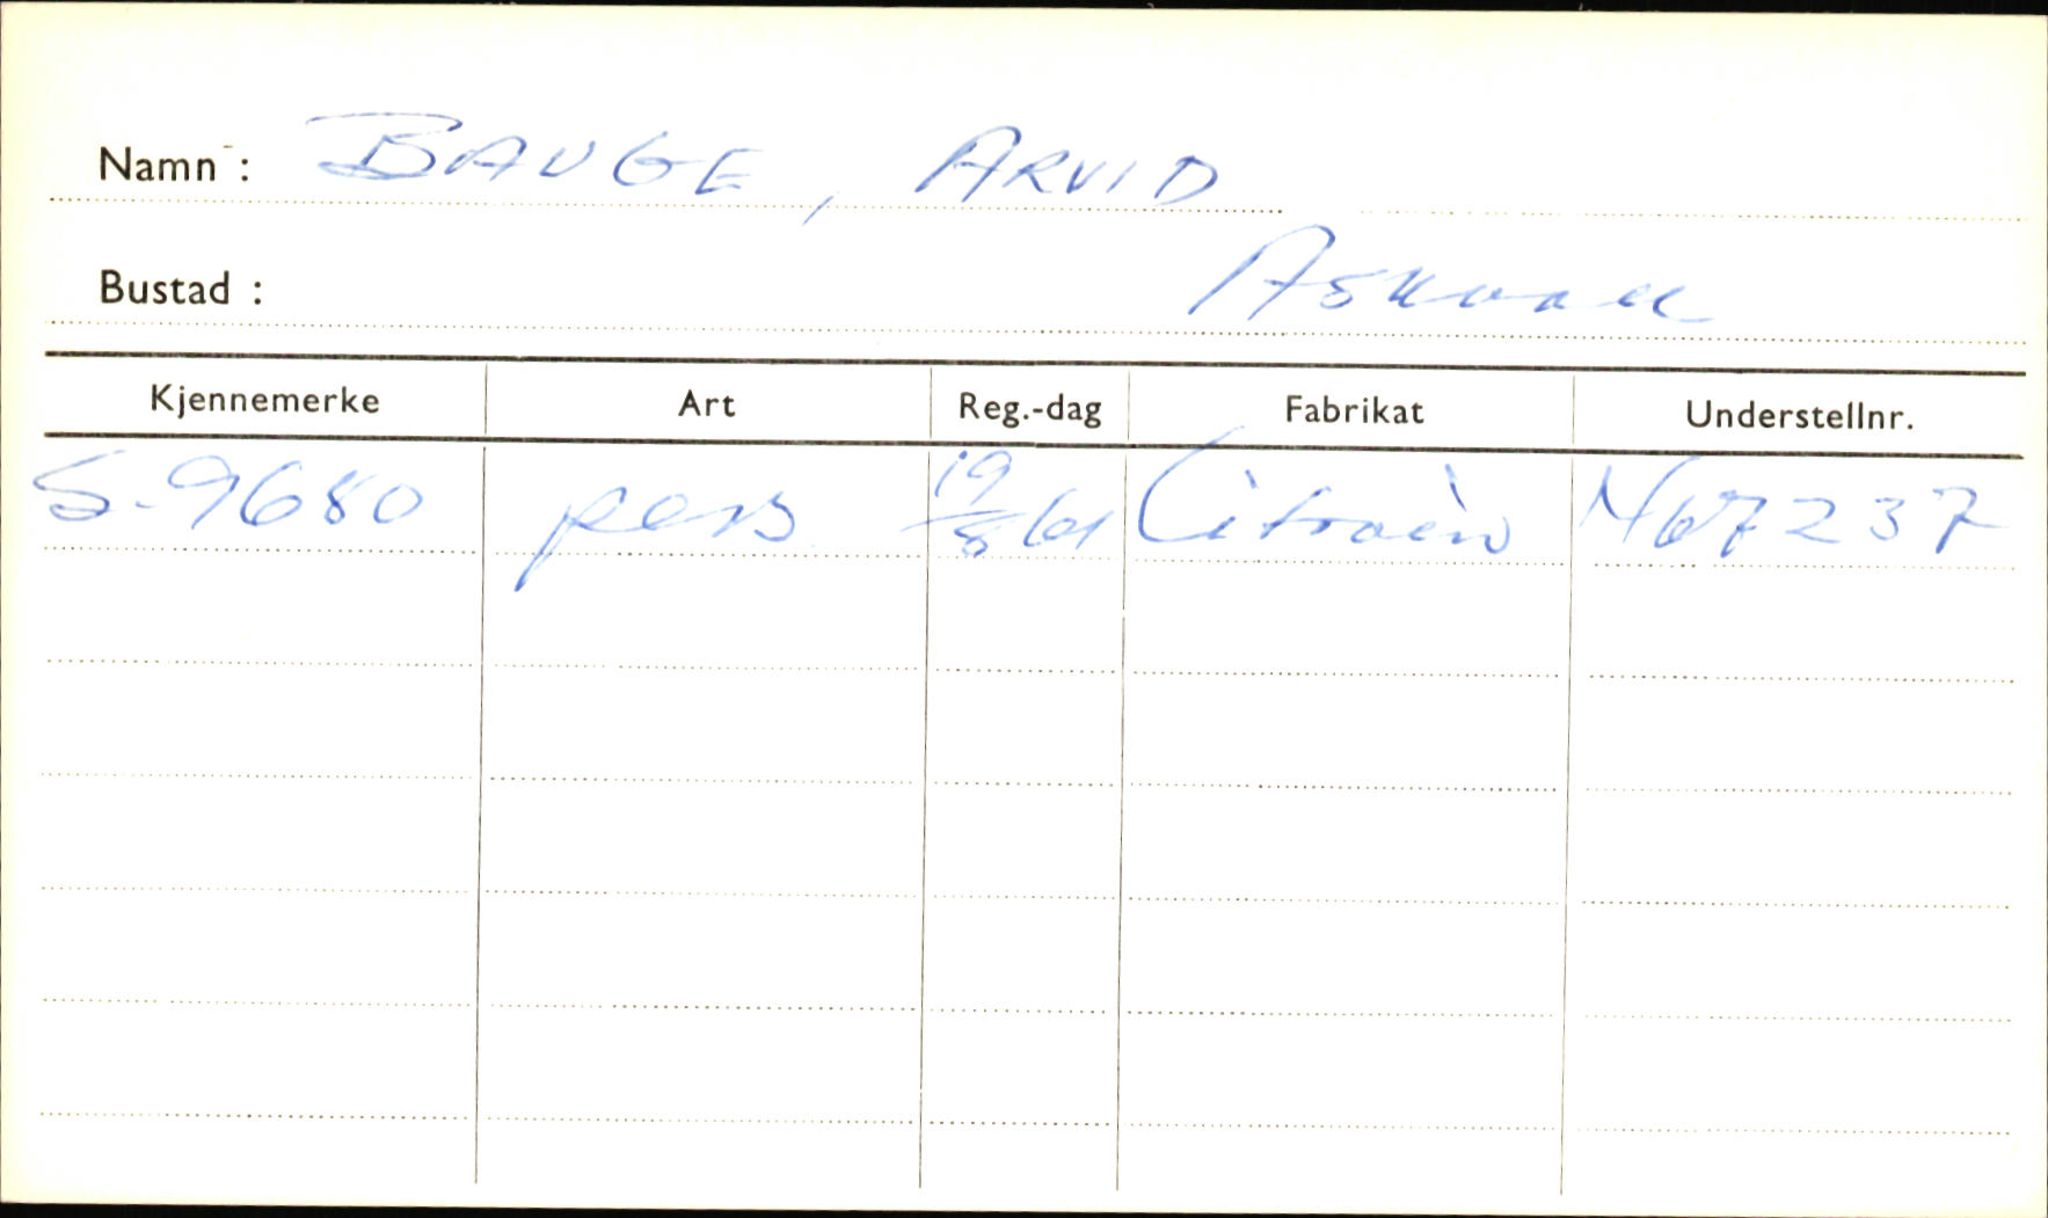 Namn : BAUGE, ARVID
Bustad : Askvoll
Kjennemerke Art Reg.-dag Fabrikat Understellnr.
S-9680 pers 19/8 61 Citroën N67237